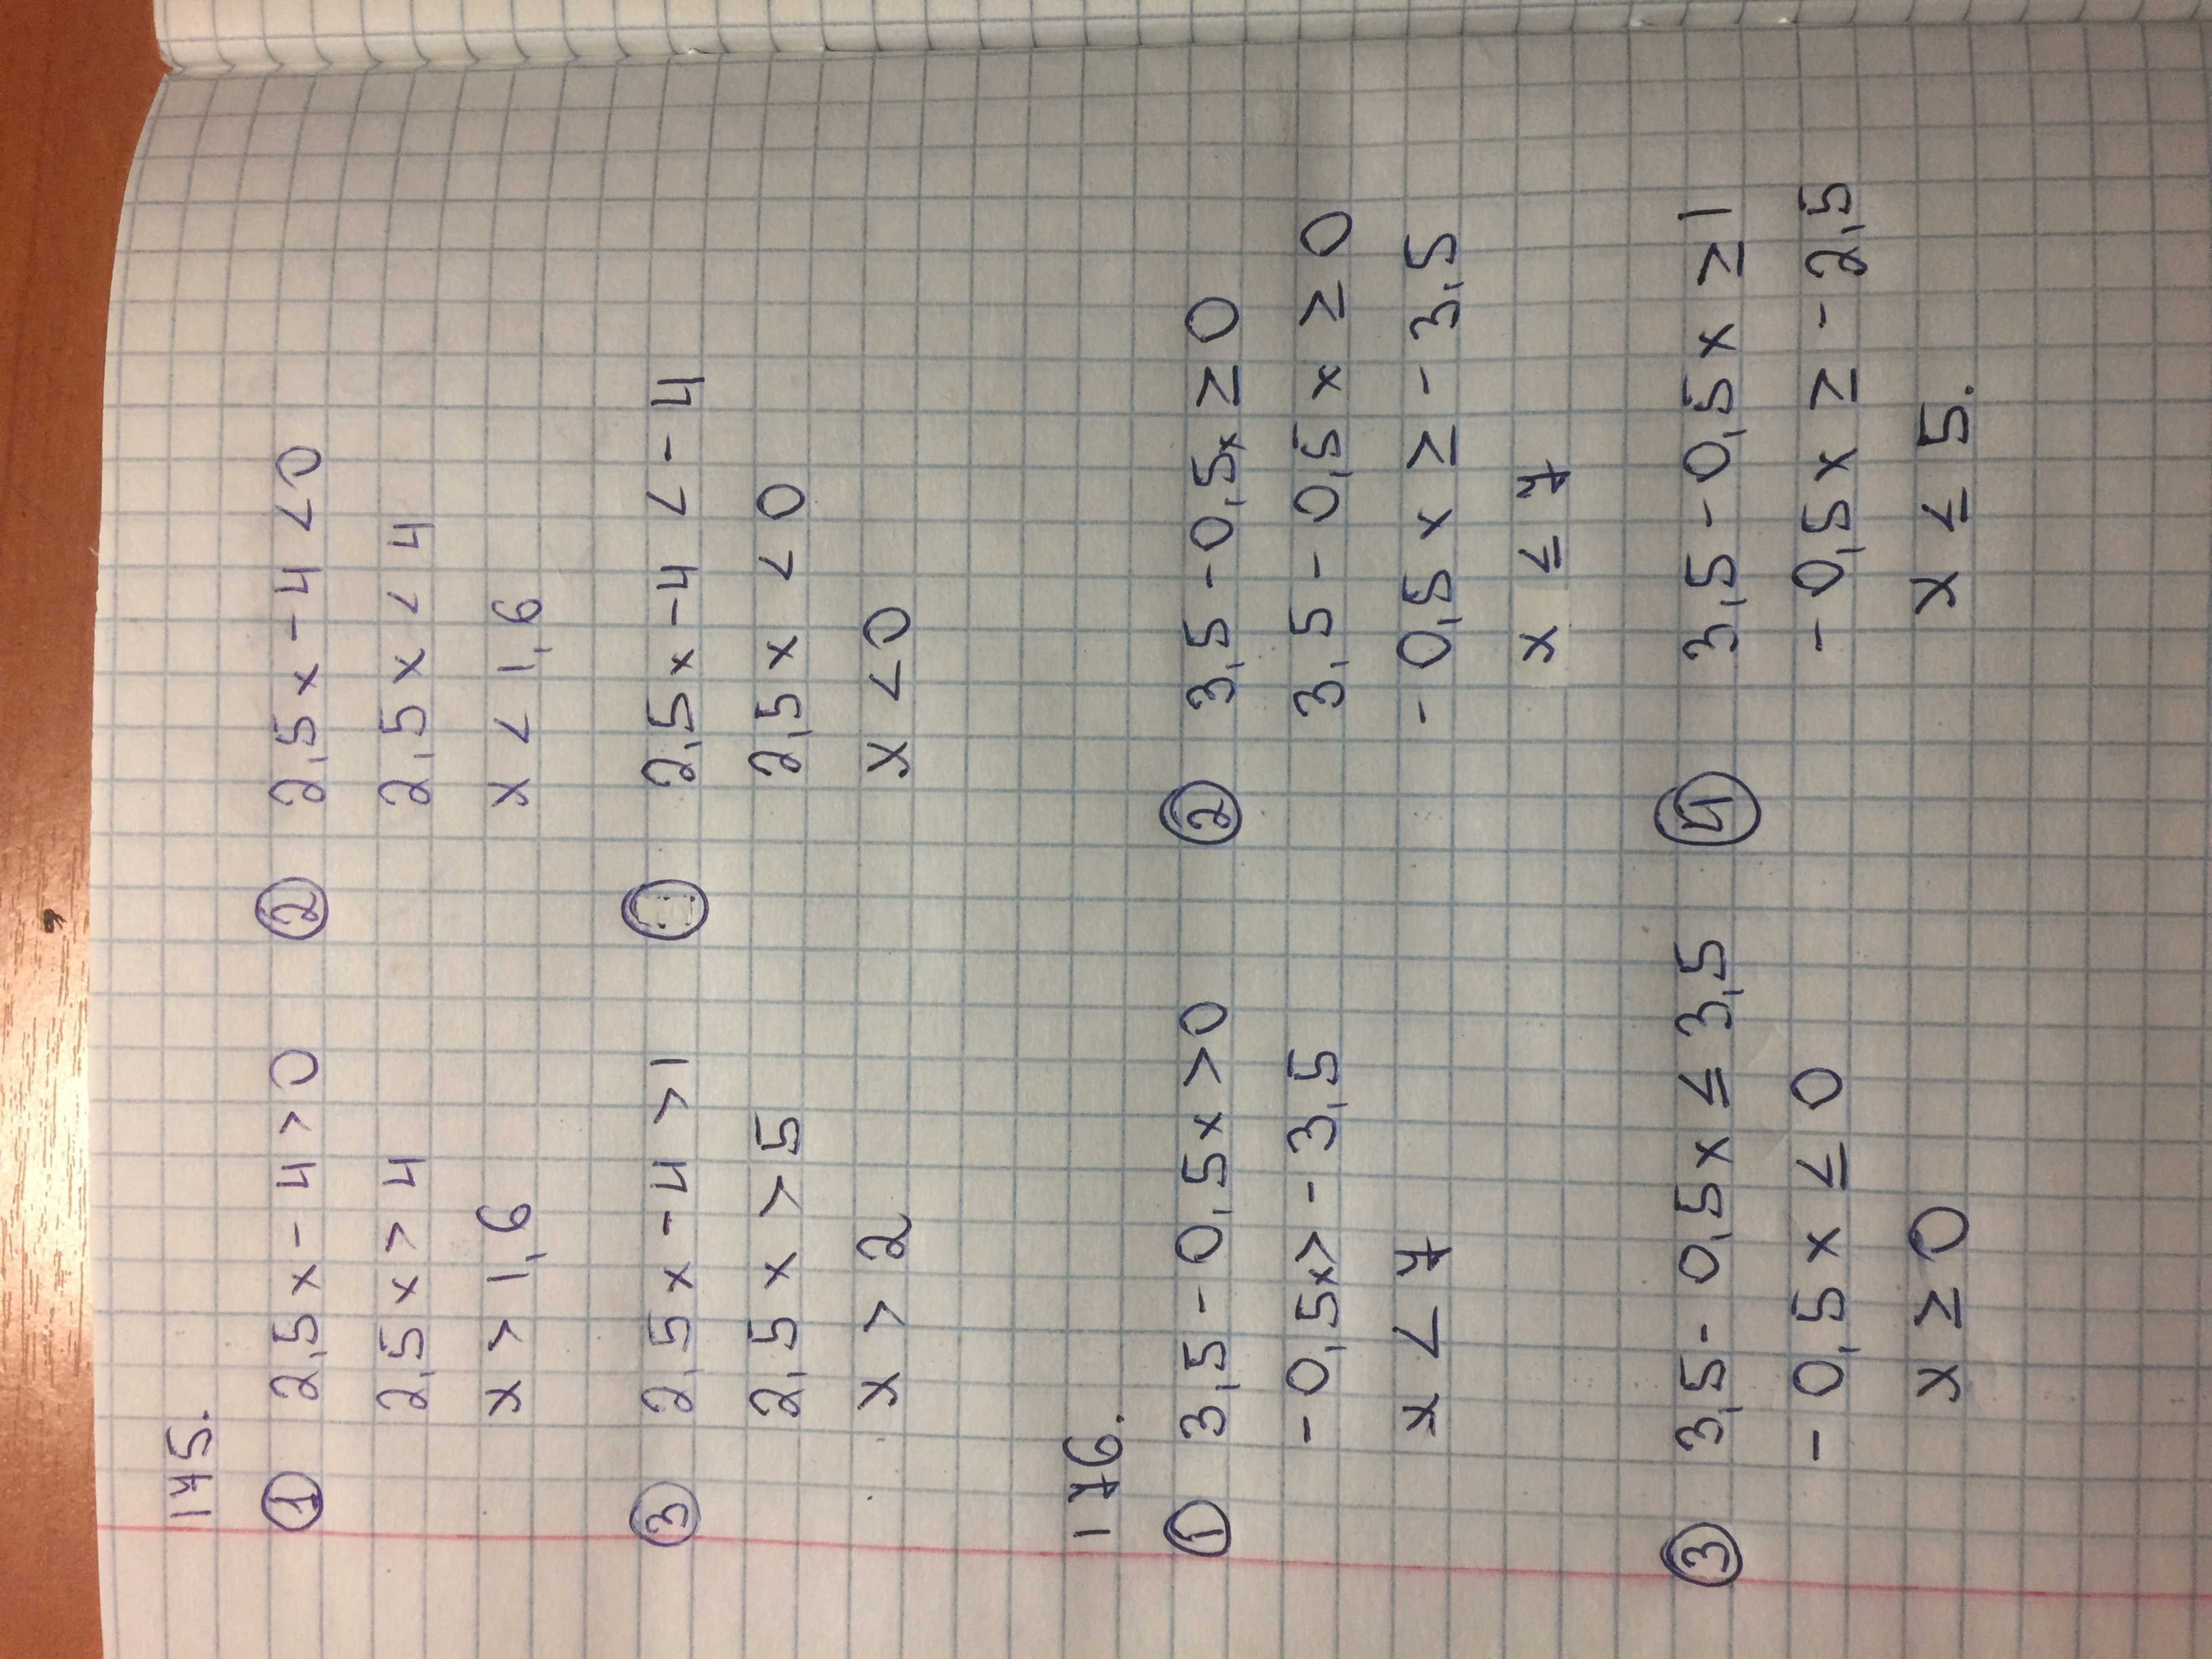 175.
① 2,5x - 4 > 0
2,5x > 4
x > 1,6
② 2,5x - 4 < 0
2,5x < 4
x < 1,6
③ 2,5x - 4 > 1
2,5x > 5
x > 2
2,5x - 4 < -4
2,5x < 0
x < 0
176.
① 3,5 - 0,5x > 0
- 0,5x > - 3,5
x < 7
② 3,5 - 0,5x ≥ 0
3,5 - 0,5x ≥ 0
- 0,5x ≥ - 3,5
x ≤ 7
③ 3,5 - 0,5x ≤ 3,5
- 0,5x ≤ 0
x ≥ 0
④ 3,5 - 0,5x ≥ 1
- 0,5x ≥ - 2,5
x ≤ 5.